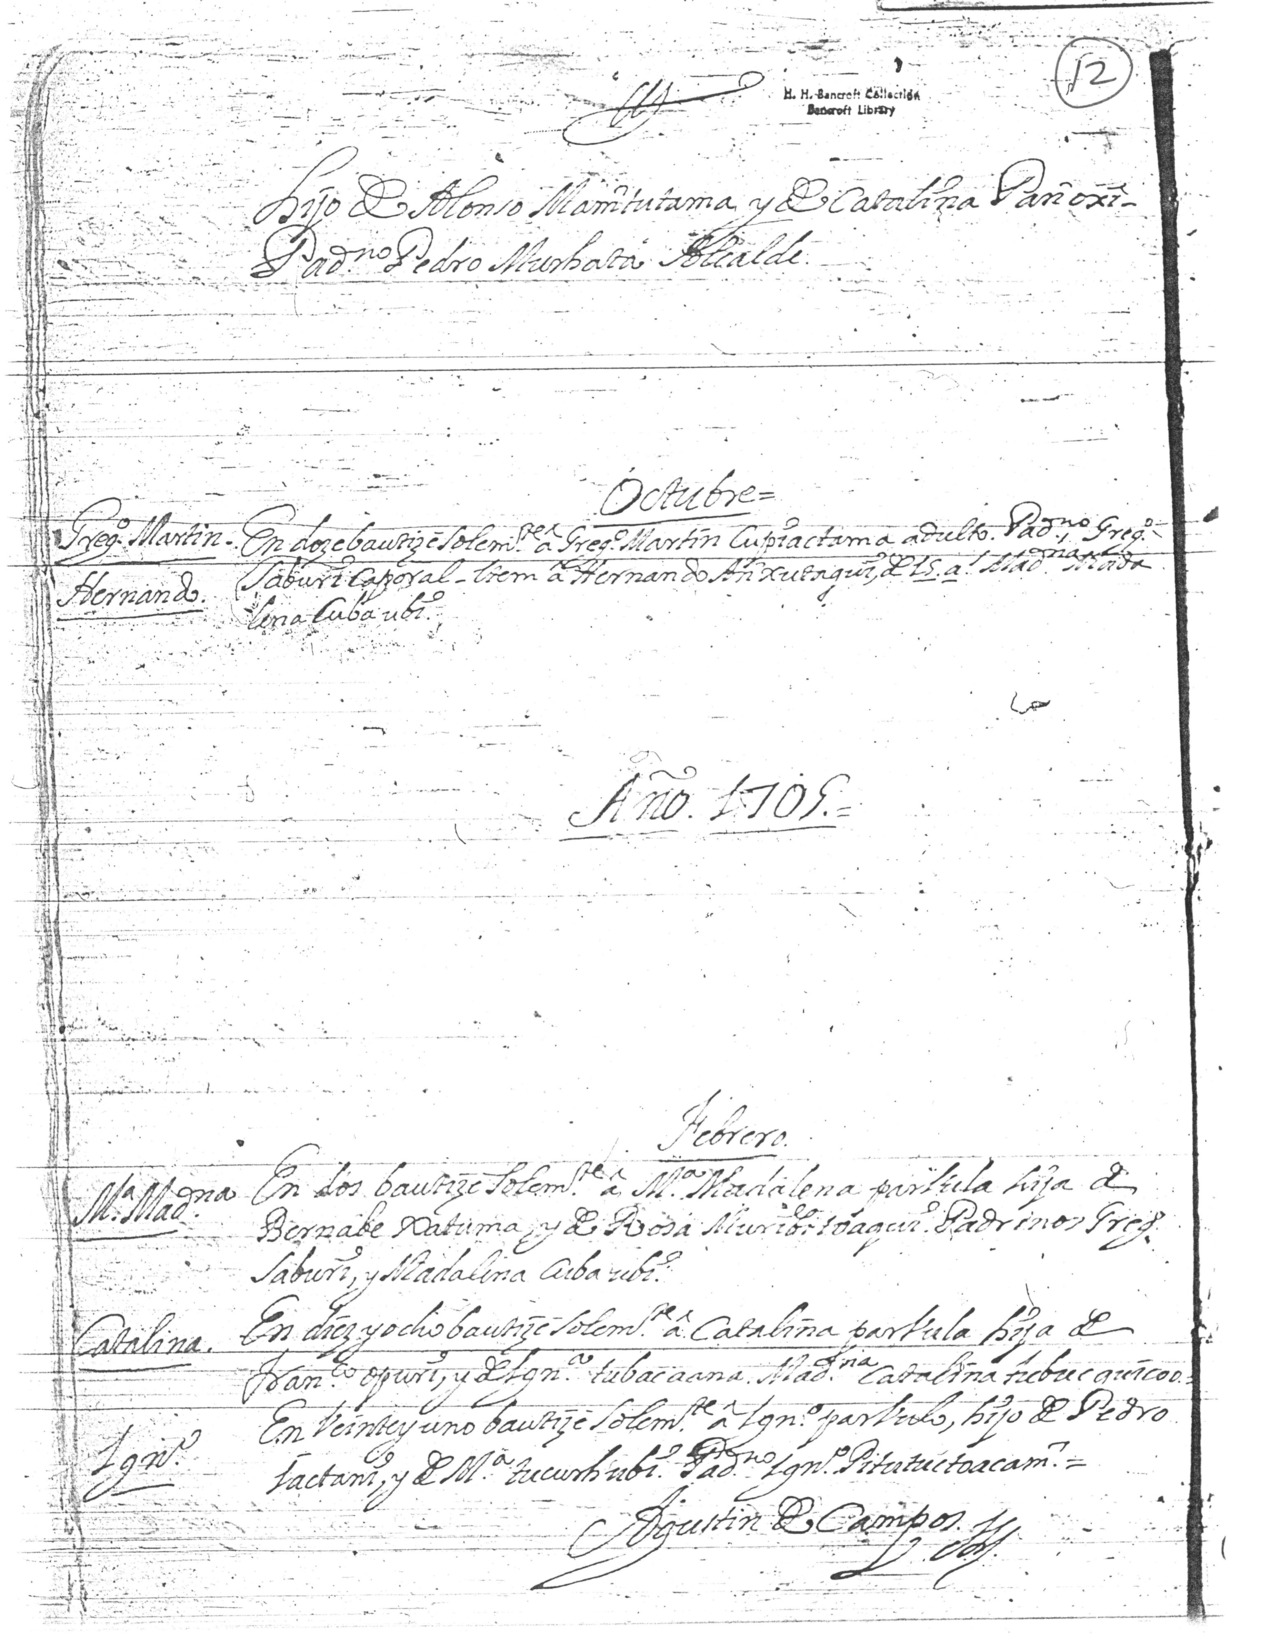 12
H. H. Bancroft Collection
Bancroft Library
hijo de Alonso Mamtutama y de Catalina Pañoxi-
Pad.no Pedro Murhata Alcalde.
Octubre=
Greg.o Martin.
En doze bautizè solem.te â Greg.o Martin Cupiactama adulto. Pad.no Greg.o
Saburi Caporal - Item â Hernando Añxutaqui, de 15 a.s Mad.na Mada
Hernando.
lena Cuba ubi.
Año. 1705.=
Febrero.
M.a Mad.na
En dos bautizè solem.te â M.a Madalena parvula hija de
Bernabe Xatuma, y de Rosa Padrinos Greg.o
Saburi, y Madalena Cuba ubi.
Catalina.
En diez y ocho bautizè solem.te â Catalina parvula hija de
Fran.co opuri, y de Ign.a tubacaana. Mad.na Catalina tubucquicoo.=
Ign.o
En Veinte y uno bautizè solem.te â Ign.o parvulo, hijo de Pedro
tactani, y de M.a tucurhubi. Pad.no Ign.o Pitutuctoacam.=
Agustin de Campos.